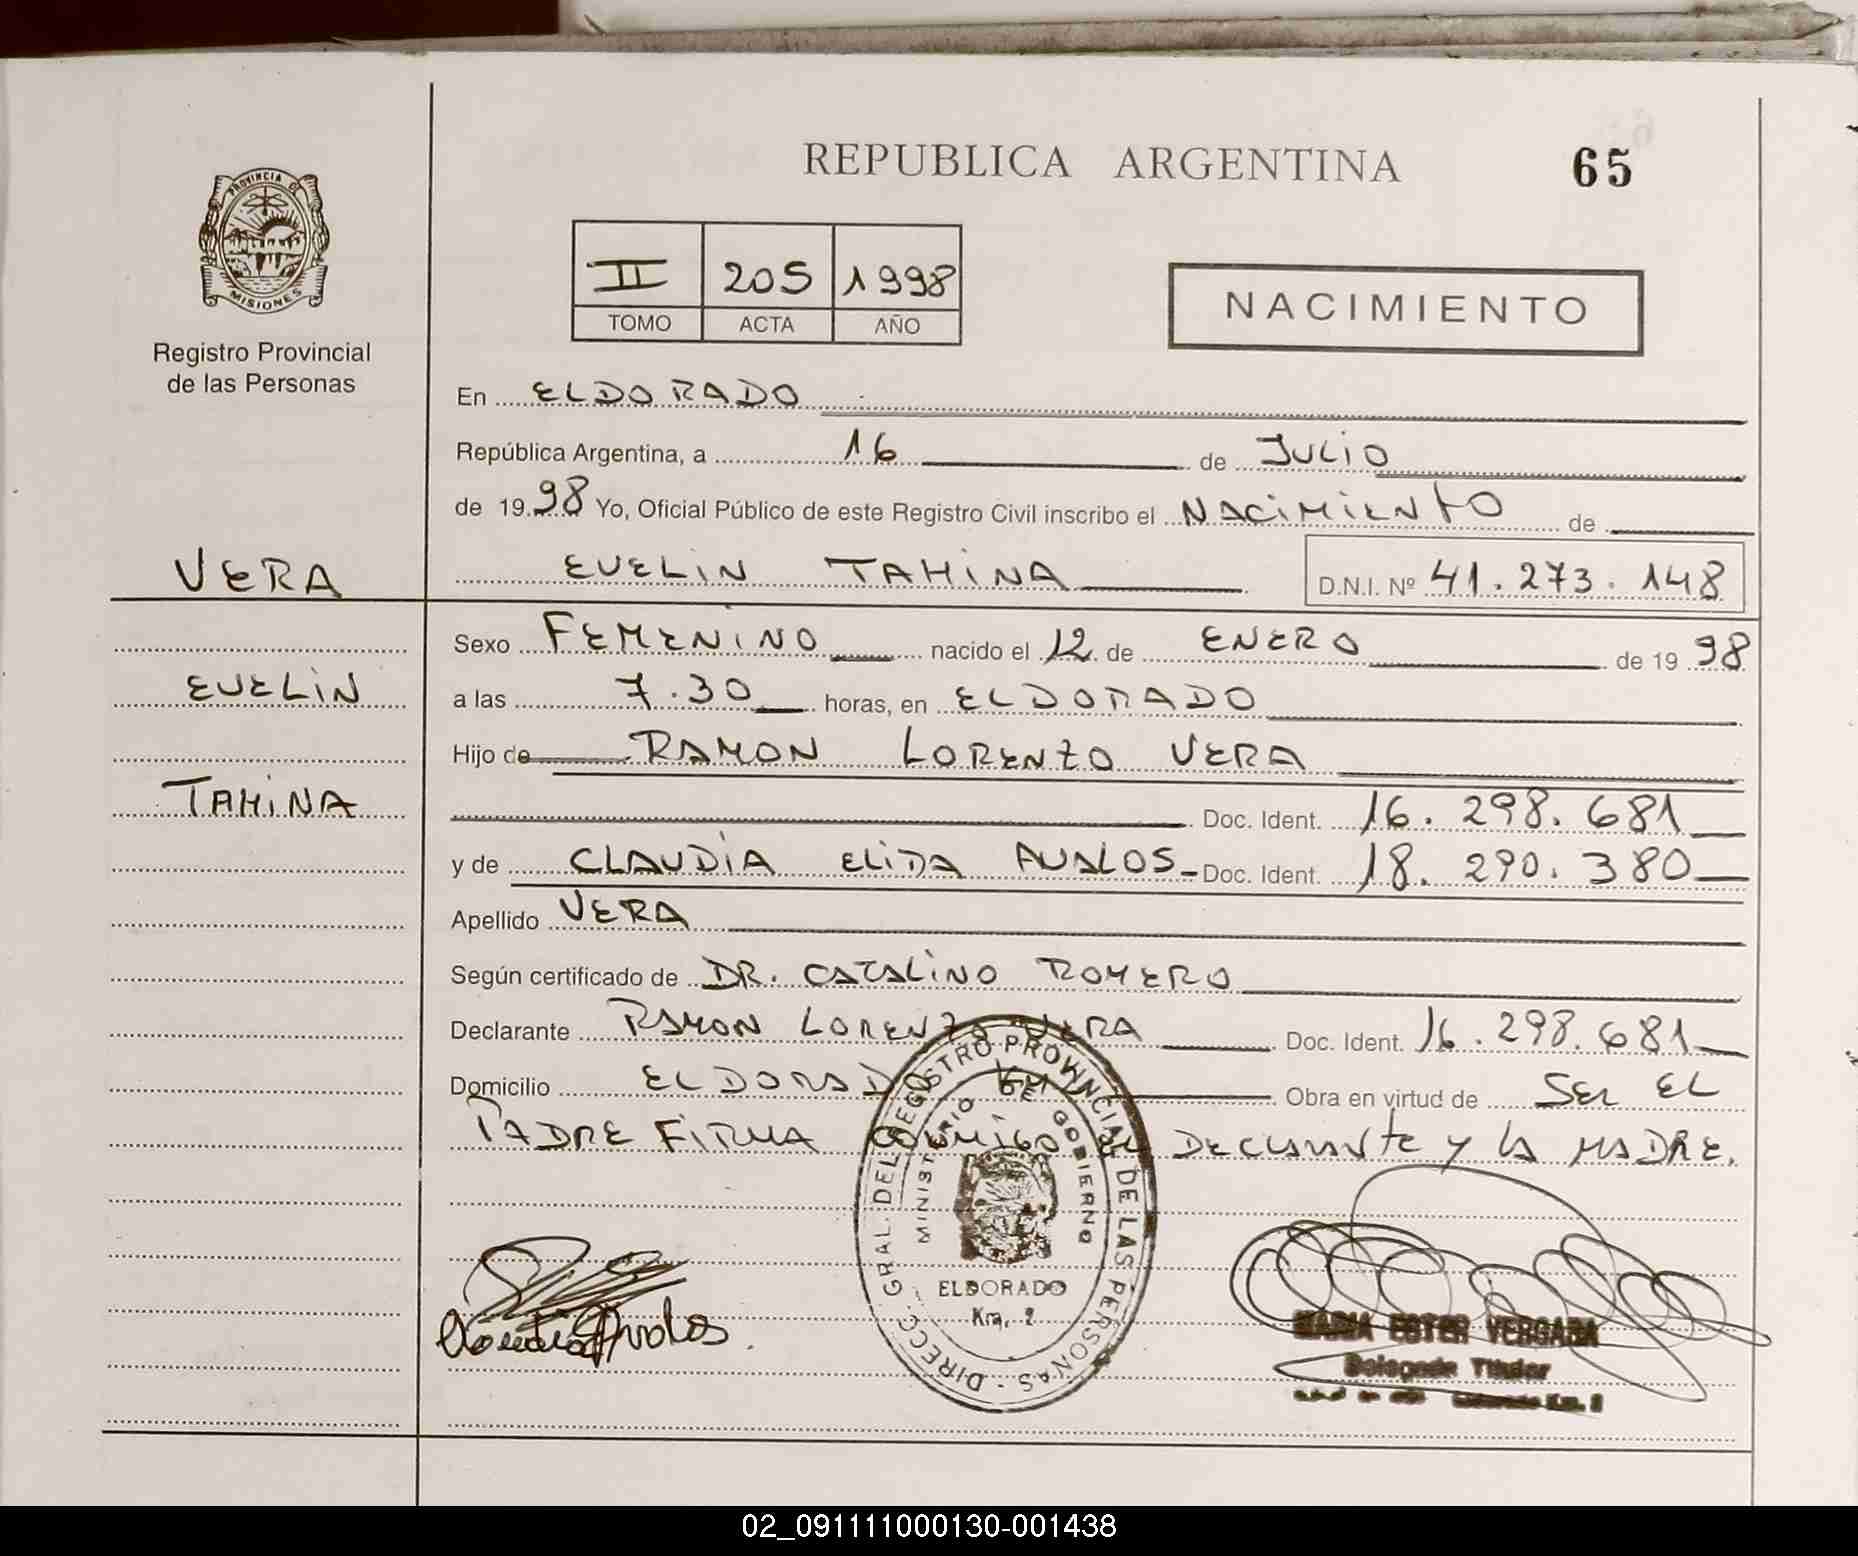 REPUBLICA ARGENTINA
65
PROVINCIA DE
MISIONES
Registro Provincial
de las Personas
II 205 1998
TOMO ACTA AÑO
NACIMIENTO
En ELDORADO
República Argentina, a 16 de JULIO
de 1998 Yo, Oficial Público de este Registro Civil inscribo el NACIMIENTO de
VERA
EVELIN TAHINA D.N.I. Nº 41.273.148
Sexo FEMENINO nacido el 12 de ENERO de 1998
EVELIN
a las 7.30 horas, en ELDORADO
Hijo de RAMON LORENZO VERA
TAHINA
Doc. Ident. 16.298.681
y de CLAUDIA ELIDA AVALOS Doc. Ident. 18.290.380
Apellido VERA
Según certificado de DR. CATALINO ROMERO
Declarante RAMON LORENZO VERA Doc. Ident. 16.298.681
Domicilio ELDORADO KM Obra en virtud de SER EL
PADRE FIRMA CONMIGO EL DECLARANTE Y LA MADRE.
DIRECC. GRAL. DEL REGISTRO PROVINCIAL DE LAS PERSONAS -
MINISTERIO DE GOBIERNO
ELDORADO
Km. 2
Claudia Avalos
MARIA ESTER VERGARA
Delegada Titular
Eldorado Km. 2
02_091111000130-001438